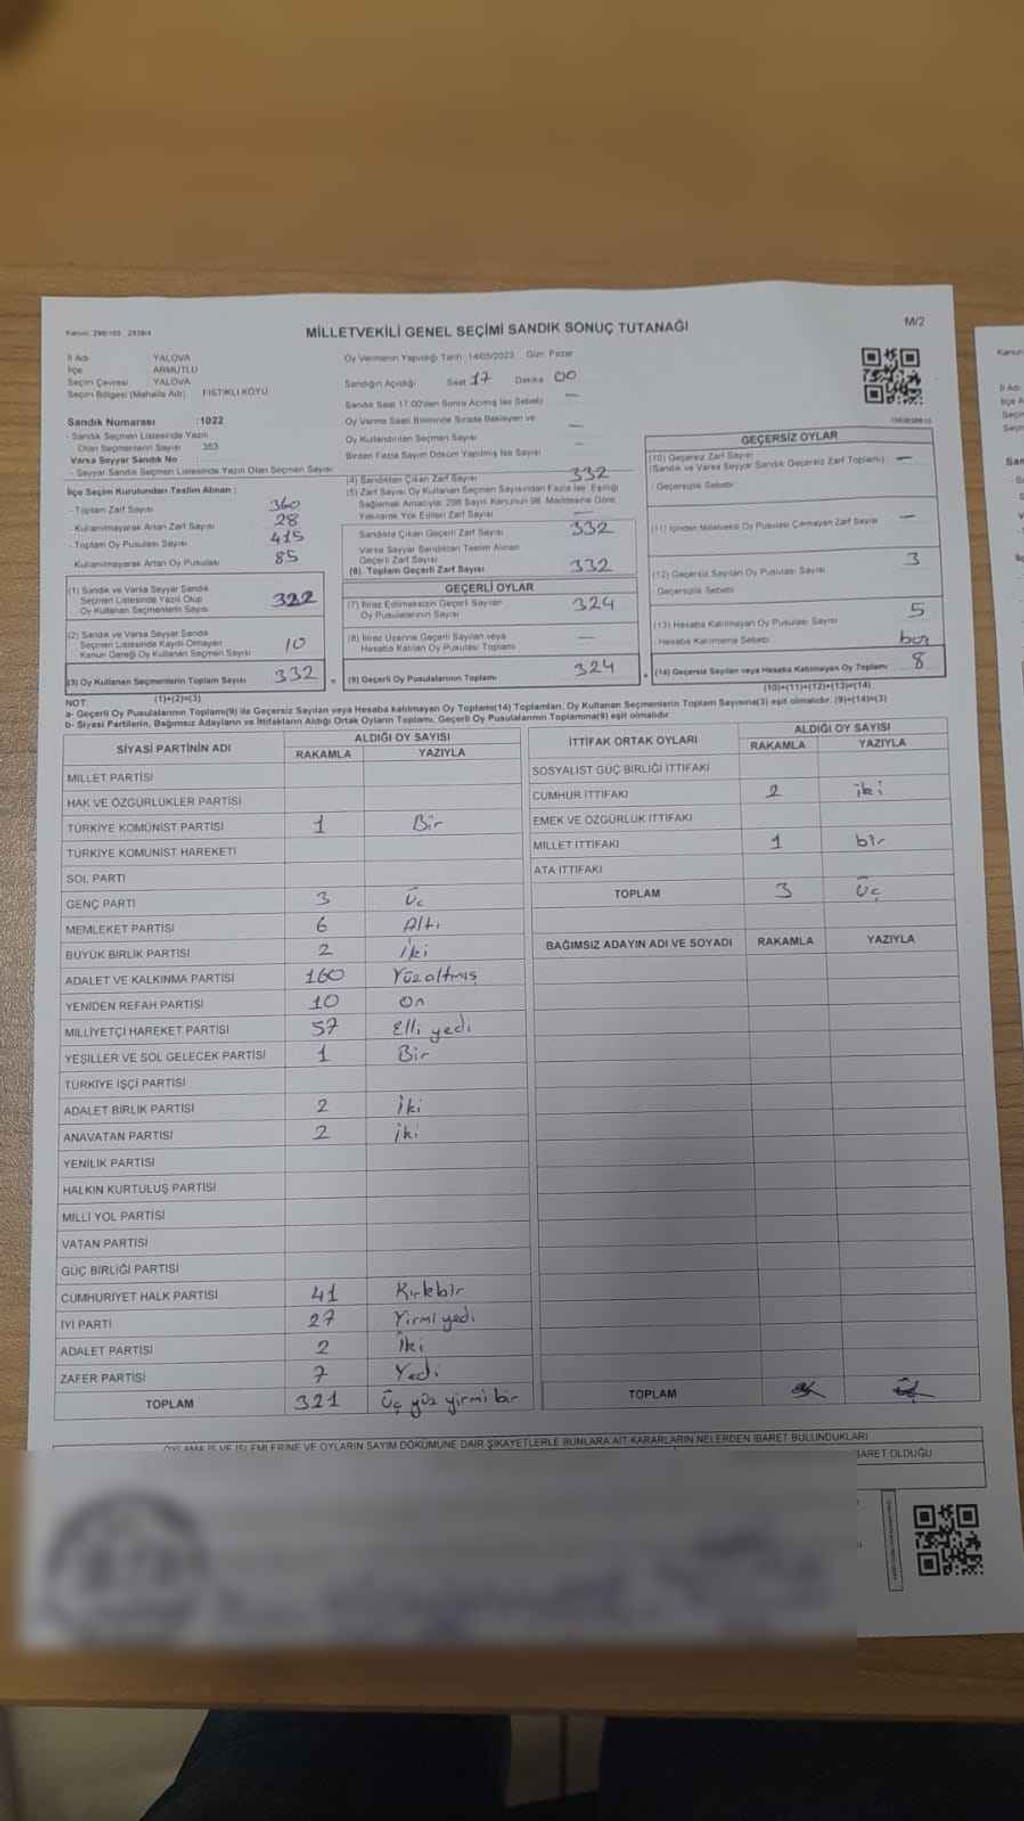 MİLLETVEKİLİ GENEL SEÇİMİ SANDIK SONUÇ TUTANAĞI
M/2
İl Adı YALOVA
İlçe ARMUTLU
Seçim Çevresi YALOVA
Seçim Bölgesi (Mahalle Adı) FISTIKLI KÖYÜ
Oy Vermenin Yapıldığı Tarih: 14/05/2023 Gün: Pazar
Sandığın Açıldığı Saat 17 Dakika 00
Sandık Saat 17:00'den Sonra Açılmış İse Sebebi —
Oy Verme Saati Bitiminde Sırada Bekleyen ve
Oy Kullandırılan Seçmen Sayısı —
Birden Fazla Sayım Döküm Yapılmış İse Sayısı —
Sandık Numarası :1022
- Sandık Seçmen Listesinde Yazılı
Olan Seçmenlerin Sayısı 383
Varsa Seyyar Sandık No
- Seyyar Sandık Seçmen Listesinde Yazılı Olan Seçmen Sayısı
İlçe Seçim Kurulundan Teslim Alınan :
- Toplam Zarf Sayısı 360
- Kullanılmayarak Artan Zarf Sayısı 28
- Toplam Oy Pusulası Sayısı 415
Kullanılmayarak Artan Oy Pusulası 85
(1) Sandık ve Varsa Seyyar Sandık
Seçmen Listesinde Yazılı Olup
Oy Kullanan Seçmenlerin Sayısı 322
(2) Sandık ve Varsa Seyyar Sandık
Seçmen Listesinde Kayıtlı Olmayan
Kanun Gereği Oy Kullanan Seçmen Sayısı 10
(3) Oy Kullanan Seçmenlerin Toplam Sayısı 332
(1)+(2)=(3)
(4) Sandıktan Çıkan Zarf Sayısı 332
(5) Zarf Sayısı Oy Kullanan Seçmen Sayısından Fazla İse, Eşitliği
Sağlamak Amacıyla, 298 Sayılı Kanunun 98. Maddesine Göre
Yakılarak Yok Edilen Zarf Sayısı —
Sandıkta Çıkan Geçerli Zarf Sayısı 332
Varsa Seyyar Sandıktan Teslim Alınan
Geçerli Zarf Sayısı
(6). Toplam Geçerli Zarf Sayısı 332
GEÇERLİ OYLAR
(7) İtiraz Edilmeksizin Geçerli Sayılan
Oy Pusulalarının Sayısı 324
(8) İtiraz Üzerine Geçerli Sayılan veya
Hesaba Katılan Oy Pusulası Toplamı —
(9) Geçerli Oy Pusulalarının Toplamı 324
GEÇERSİZ OYLAR
(10) Geçersiz Zarf Sayısı —
(Sandık ve Varsa Seyyar Sandık Geçersiz Zarf Toplamı)
Geçersizlik Sebebi
(11) İçinden Milletvekili Oy Pusulası Çıkmayan Zarf Sayısı —
(12) Geçersiz Sayılan Oy Pusulası Sayısı 3
Geçersizlik Sebebi
(13) Hesaba Katılmayan Oy Pusulası Sayısı 5
Hesaba Katılmama Sebebi boş
(14) Geçersiz Sayılan veya Hesaba Katılmayan Oy Toplamı 8
(10)+(11)+(12)+(13)=(14)
NOT:
a- Geçerli Oy Pusulalarının Toplamı(9) ile Geçersiz Sayılan veya Hesaba Katılmayan Oy Toplamı(14) Toplamları, Oy Kullanan Seçmenlerin Toplam Sayısına(3) eşit olmalıdır. (9)+(14)=(3)
b- Siyasi Partilerin, Bağımsız Adayların ve İttifakların Aldığı Ortak Oyların Toplamı, Geçerli Oy Pusulalarının Toplamına(9) eşit olmalıdır.
SİYASİ PARTİNİN ADI ALDIĞI OY SAYISI
RAKAMLA YAZIYLA
MİLLET PARTİSİ
HAK VE ÖZGÜRLÜKLER PARTİSİ
TÜRKİYE KOMÜNİST PARTİSİ 1 Bir
TÜRKİYE KOMÜNİST HAREKETİ
SOL PARTİ
GENÇ PARTİ 3 Üç
MEMLEKET PARTİSİ 6 Altı
BÜYÜK BİRLİK PARTİSİ 2 İki
ADALET VE KALKINMA PARTİSİ 160 Yüzaltmış
YENİDEN REFAH PARTİSİ 10 On
MİLLİYETÇİ HAREKET PARTİSİ 57 Elli yedi
YEŞİLLER VE SOL GELECEK PARTİSİ 1 Bir
TÜRKİYE İŞÇİ PARTİSİ
ADALET BİRLİK PARTİSİ 2 İki
ANAVATAN PARTİSİ 2 İki
YENİLİK PARTİSİ
HALKIN KURTULUŞ PARTİSİ
MİLLİ YOL PARTİSİ
VATAN PARTİSİ
GÜÇ BİRLİĞİ PARTİSİ
CUMHURİYET HALK PARTİSİ 41 Kırkbir
İYİ PARTİ 27 Yirmi yedi
ADALET PARTİSİ 2 İki
ZAFER PARTİSİ 7 Yedi
TOPLAM 321 Üç yüz yirmi bir
İTTİFAK ORTAK OYLARI ALDIĞI OY SAYISI
RAKAMLA YAZIYLA
SOSYALİST GÜÇ BİRLİĞİ İTTİFAKI
CUMHUR İTTİFAKI 2 iki
EMEK VE ÖZGÜRLÜK İTTİFAKI
MİLLET İTTİFAKI 1 bir
ATA İTTİFAKI
TOPLAM 3 Üç
BAĞIMSIZ ADAYIN ADI VE SOYADI RAKAMLA YAZIYLA
TOPLAM
OYLAMA İŞ VE İŞLEMLERİNE VE OYLARIN SAYIM DÖKÜMÜNE DAİR ŞİKAYETLERLE BUNLARA AİT KARARLARIN NELERDEN İBARET BULUNDUKLARI
İBARET OLDUĞU